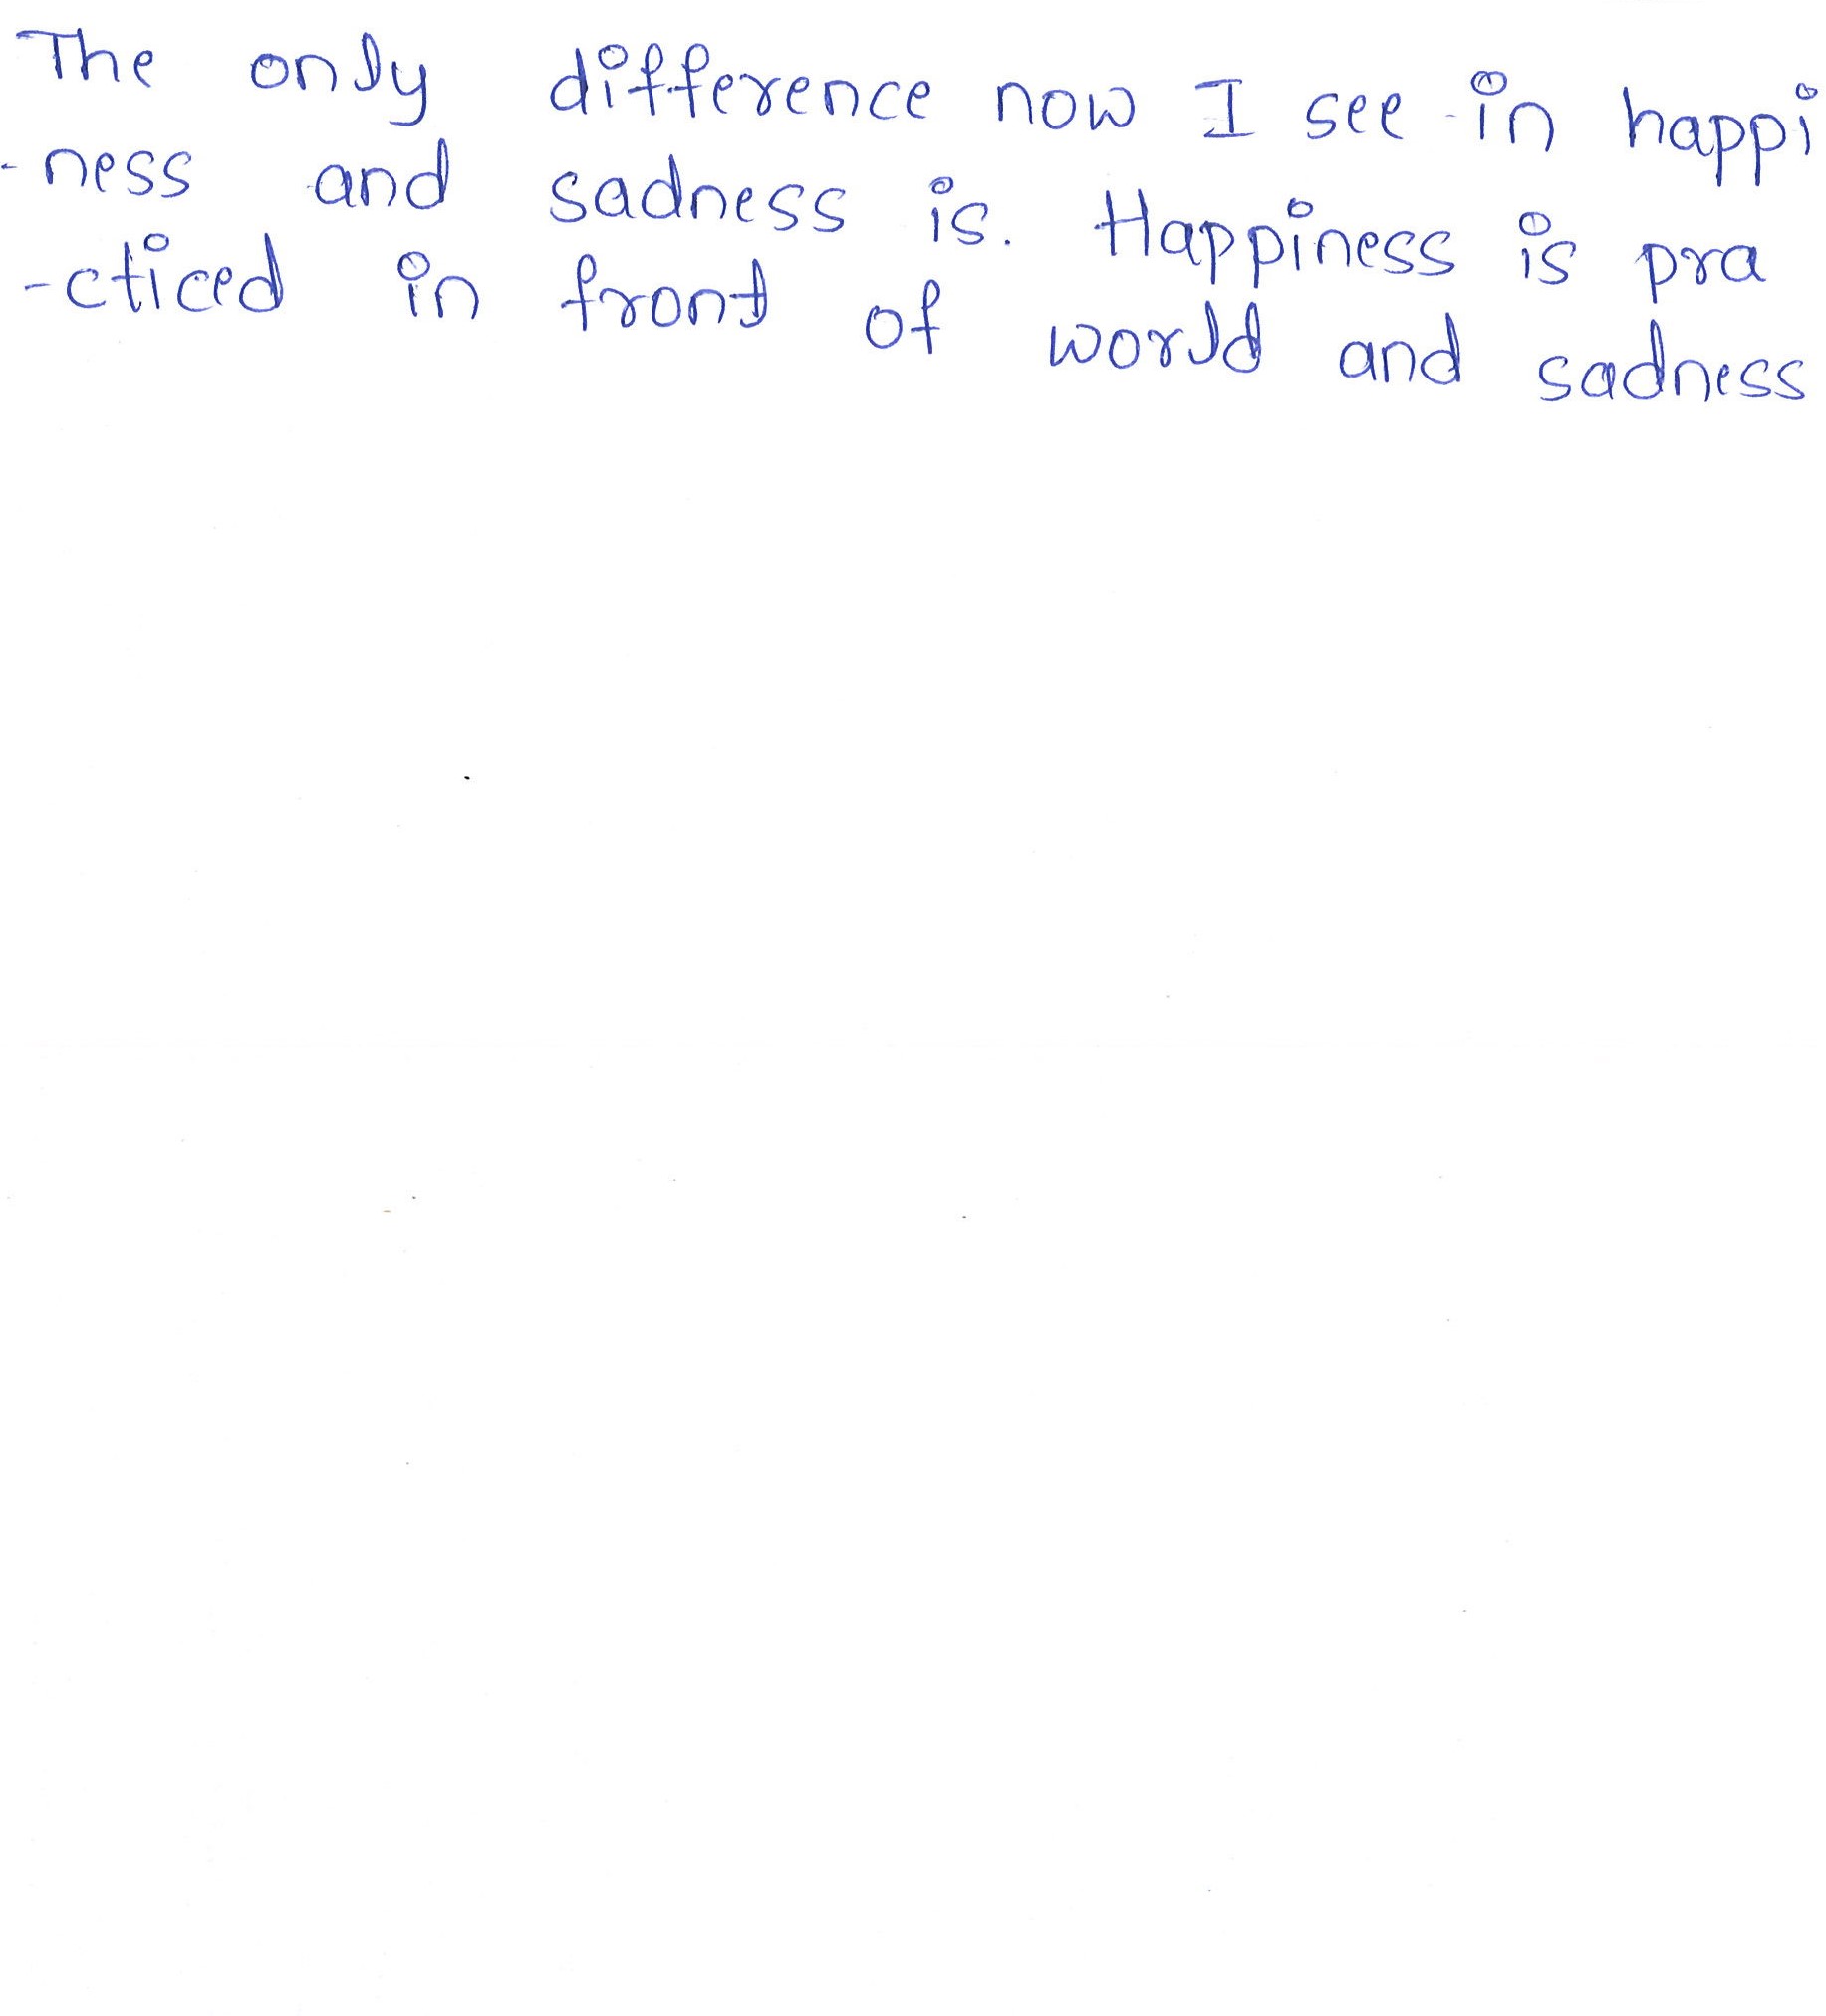 The only difference now I see in happi
-ness and sadness is. Happiness is pra
-cticed in front of world and sadness